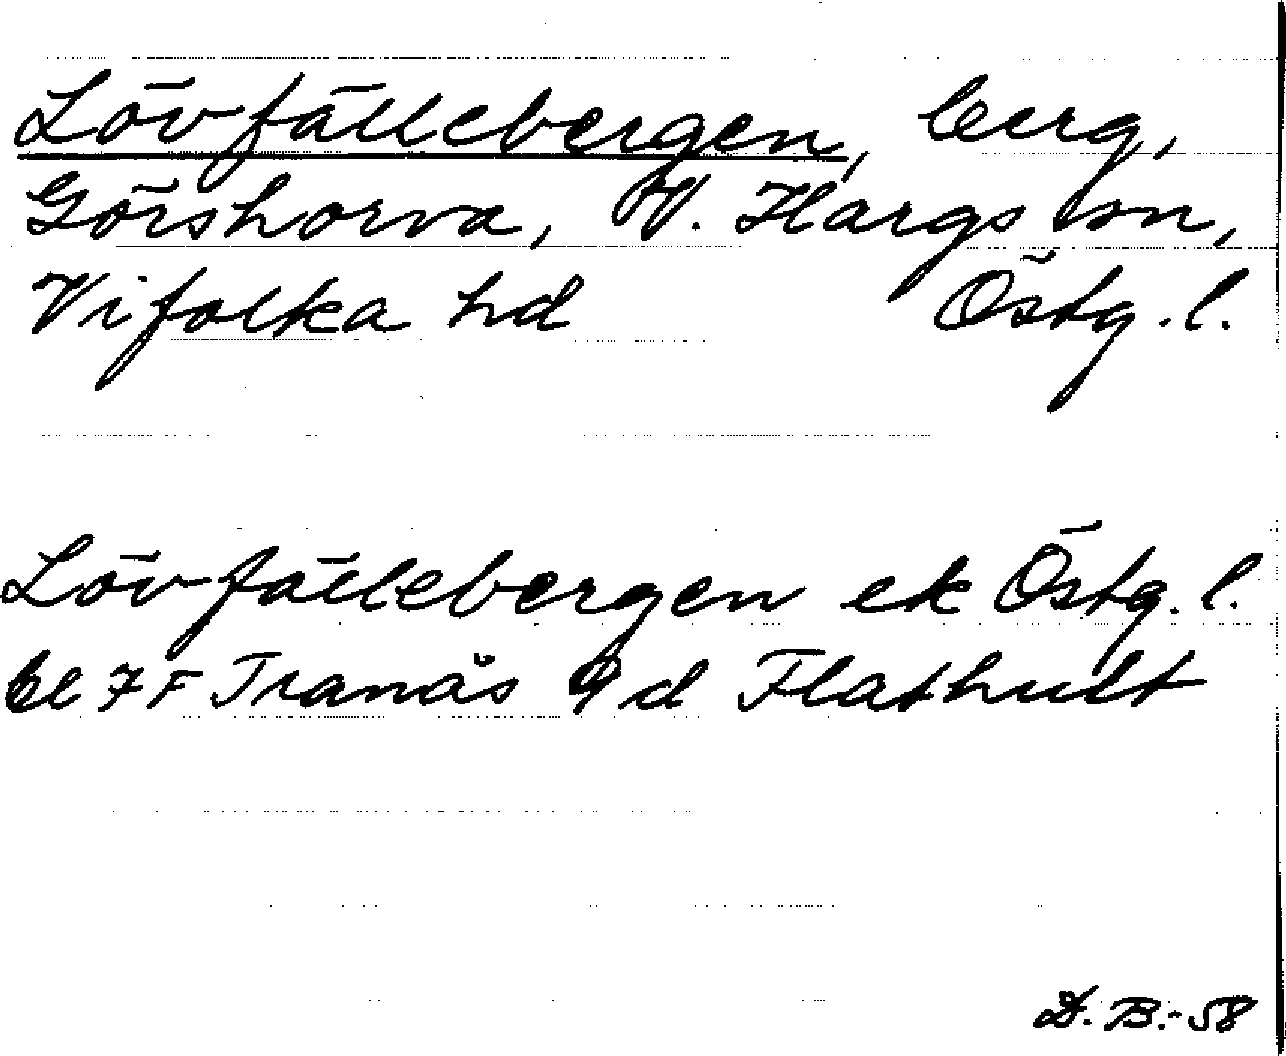 Lövfällebergen, berg,
Görshorva, V. Hargs sn,
Vifolka hd Östg. l.
Lövfällebergen ek Östg. l.
bl 7 F Tranås 9 d Flathult
D. B.-58